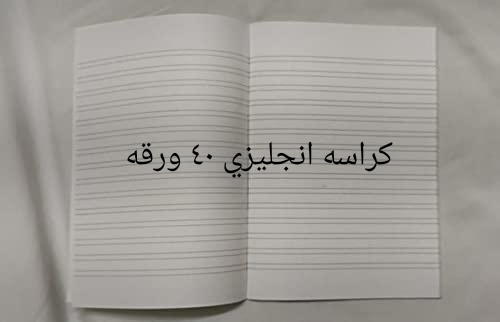 كراسه انجليزي ٤٠ ورقه